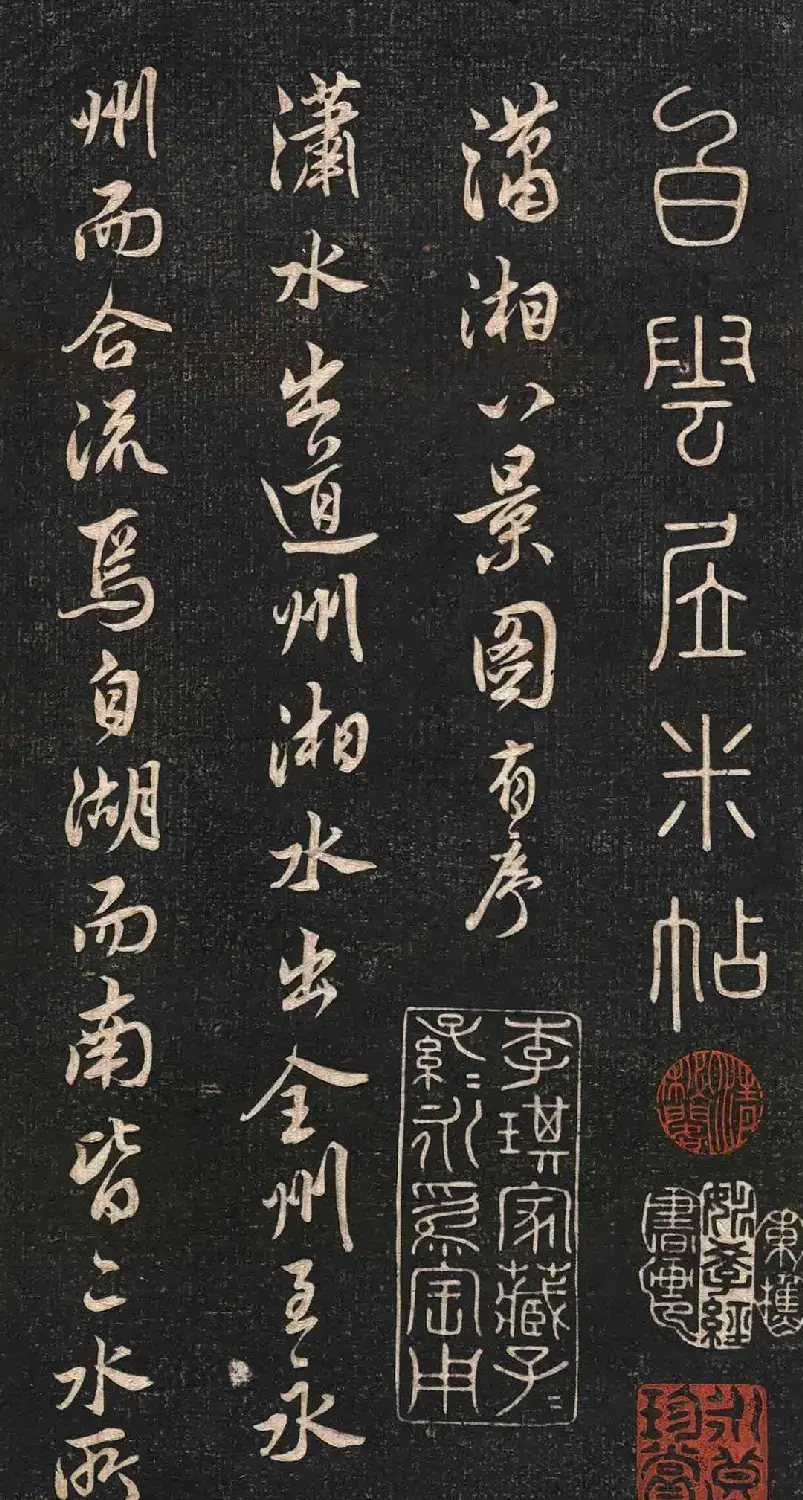 白雲居米帖
瀟湘八景圖有序
瀟水出道州湘水出全州至永
州而合流焉自湖而南皆二水所
李琪家藏子〻
孫〻永為宝用